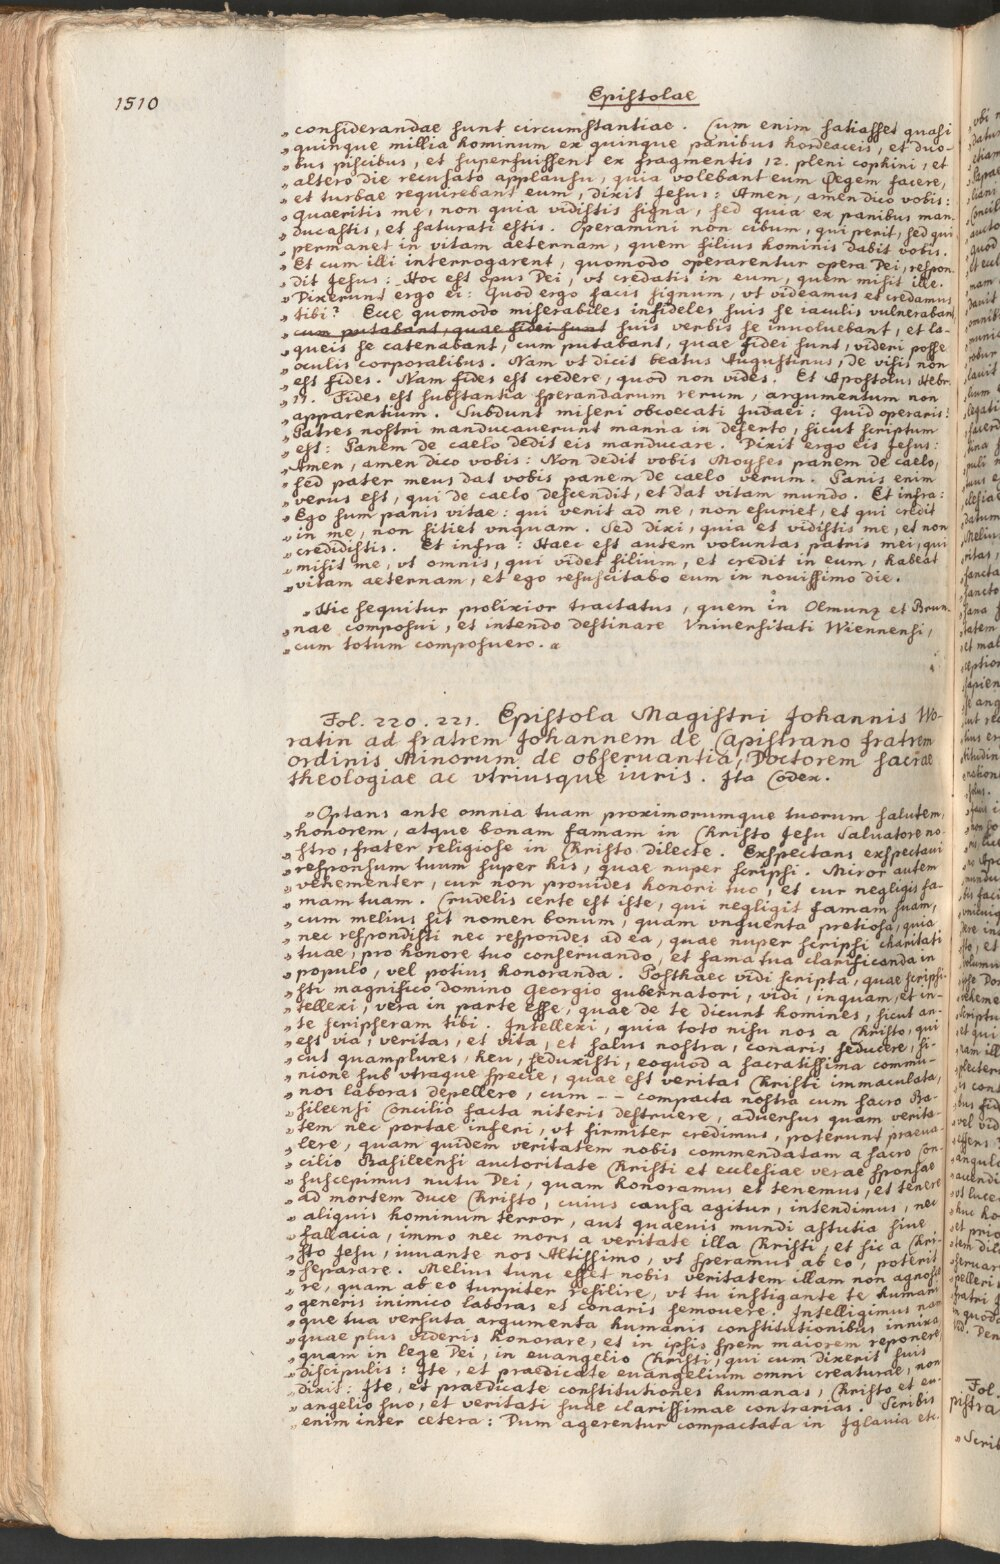 1510
Epistolae
„considerandae sunt circumstantiae. Cum enim satiasset quasi
„quinque millia hominum ex quinque panibus hordeaceis, et duo-
„bus piscibus, et superfuissent ex fragmentis 12. pleni cophini, et
„altero die recusato applausu, quia volebant eum Regem facere,
„et turbae requirebant eum, dixit Jesus: Amen, amen dico vobis:
„quaeritis me, non quia vidistis signa, sed quia ex panibus man-
„ducastis, et saturati estis. Operamini non cibum, qui perit, sed qui
„permanet in vitam aeternam, quem filius hominis dabit vobis.
„Et cum illi interrogarent, quomodo operarentur opera Dei, respon-
„dit Jesus: Hoc est opus Dei, vt credatis in eum, quem misit ille.
„Dixerunt ergo ei: Quod ergo facis signum, vt videamus et credamus
„tibi? Ecce quomodo miserabiles infideles suis se iaculis vulnerabant
„cum putabant, quae fidei sunt suis verbis se inuoluebant, et la-
„queis se catenabant, cum putabant, quae fidei sunt, videri posse
„oculis corporalibus. Nam vt dicit beatus Augustinus, de visis non
„est fides. Nam fides est credere, quod non vides. Et Apostolus Hebr.
„11. Fides est substantia sperandarum rerum, argumentum non
„apparentium. Subdunt miseri obcoecati Judaei: Quid operaris?
„Patres nostri manducauerunt manna in deserto, sicut scriptum
„est: Panem de caelo dedit eis manducare. Dixit ergo eis Jesus:
„Amen, amen dico vobis: Non dedit vobis Moyses panem de caelo,
„sed pater meus dat vobis panem de caelo verum. Panis enim
„verus est, qui de caelo descendit, et dat vitam mundo. Et infra:
„Ego sum panis vitae: qui venit ad me, non esuriet, et qui credit
„in me, non sitiet vnquam. Sed dixi, quia et vidistis me, et non
„credidistis. Et infra: Haec est autem voluntas patris mei, qui
„misit me, vt omnis, qui videt filium, et credit in eum, habeat
„vitam aeternam, et ego resuscitabo eum in nouissimo die.
„Hic sequitur prolixior tractatus, quem in Olmunz et Brun-
„nae composui, et intendo destinare Vniuersitati Wiennensi,
„cum totum composuero.
Fol. 220. 221. Epistola Magistri Johannis Wo-
ratin ad fratrem Johannem de Capistrano fratrem
ordinis Minorum de obseruantia, Doctorem sacrae
theologiae ac vtriusque iuris. Ita Codex.
„Optans ante omnia tuam proximorumque tuorum salutem,
„honorem, atque bonam famam in Christo Jesu Saluatore no-
„stro, frater religiose in Christo dilecte. Exspectans exspectaui
„responsum tuum super his, quae nuper scripsi. Miror autem
„vehementer, cur non prouides honori tuo, et cur negligis fa-
„mam tuam. Crudelis certe est iste, qui negligit famam suam,
„cum melius sit nomen bonum, quam vnguenta pretiosa, quia
„nec respondisti nec respondes ad ea, quae nuper scripsi charitati
„tuae, pro honore tuo conseruando, et fama tua clarificanda in
„populo, vel potius honoranda. Posthaec vidi scripta, quae scripsi-
„sti magnifico domino Georgio gubernatori, vidi, inquam, et in-
„tellexi, vera in parte esse, quae de te dicunt homines, sicut an-
„te scripseram tibi. Intellexi, quia toto nisu nos a Christo, qui
„est via, veritas, et vita, et salus nostra, conaris seducere, si-
„cut quamplures, heu, seduxisti, eoquod a sacratissima commu-
„nione sub vtraque specie, quae est veritas Christi immaculata,
„nos laboras depellere, cum -- compacta nostra cum sacro Ba-
„sileensi Concilio facta niteris destruere, aduersus quam verita-
„tem nec portae inferi, vt firmiter credimus, poterunt praeua-
„lere, quam quidem veritatem nobis commendatam a sacro Con-
„cilio Basileensi auctoritate Christi et ecclesiae verae sponsae
„suscepimus nutu Dei, quam honoramus et tenemus, et tenere
„ad mortem duce Christo, cuius causa agitur, intendimus, nec
„aliquis hominum terror, aut quaeuis mundi astutia siue
„fallacia, immo nec mors a veritate illa Christi, et sic a Chri-
„sto Jesu, iuuante nos Altissimo, vt speramus ab eo, poterit
„separare. Melius tunc esset nobis veritatem illam non agnosce-
„re, quam ab eo turpiter resilire, vt tu instigante te humani
„generis inimico laboras et conaris semouere. Intelligimus nam-
„que tua versuta argumenta humanis constitutionibus innixa,
„quae plus videris honorare, et in ipsis spem maiorem reponere,
„quam in lege Dei, in euangelio Christi, qui cum dixerit suis
„discipulis: Ite, et praedicate euangelium omni creaturae, non
„dixit: Ite, et praedicate constitutiones humanas, Christo et eu-
„angelio suo, et veritati suae clarissimae contrarias. Scribis
„enim inter cetera: Dum agerentur compactata in Iglauia etc.